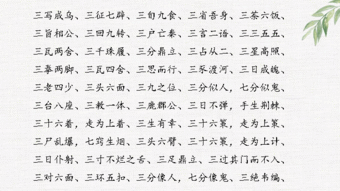 三写成乌、三征七辟、三旬九食、三省吾身、三茶六饭、
三旨相公、三回九转、三户亡秦、三言二语、三三五五、
三瓦两舍、三千珠履、三分鼎立、三占从二、三星高照、
三拳两脚、三瓦四舍、三思而行、三豕渡河、三日成魄、
三老四少、三头六面、三九之位、三分似人，七分似鬼、
三台八座、三教一体、三鹿郡公、三日不弹，手生荆棘、
三十六着，走为上着、三生有幸、三十六策，走为上策、
三尸乱爆，七窍生烟、三头六臂、三十六策，走为上计、
三日仆射、三寸不烂之舌、三足鼎立、三过其门而不入、
三对六面、三环五扣、三分像人，七分像鬼、三绝韦编、